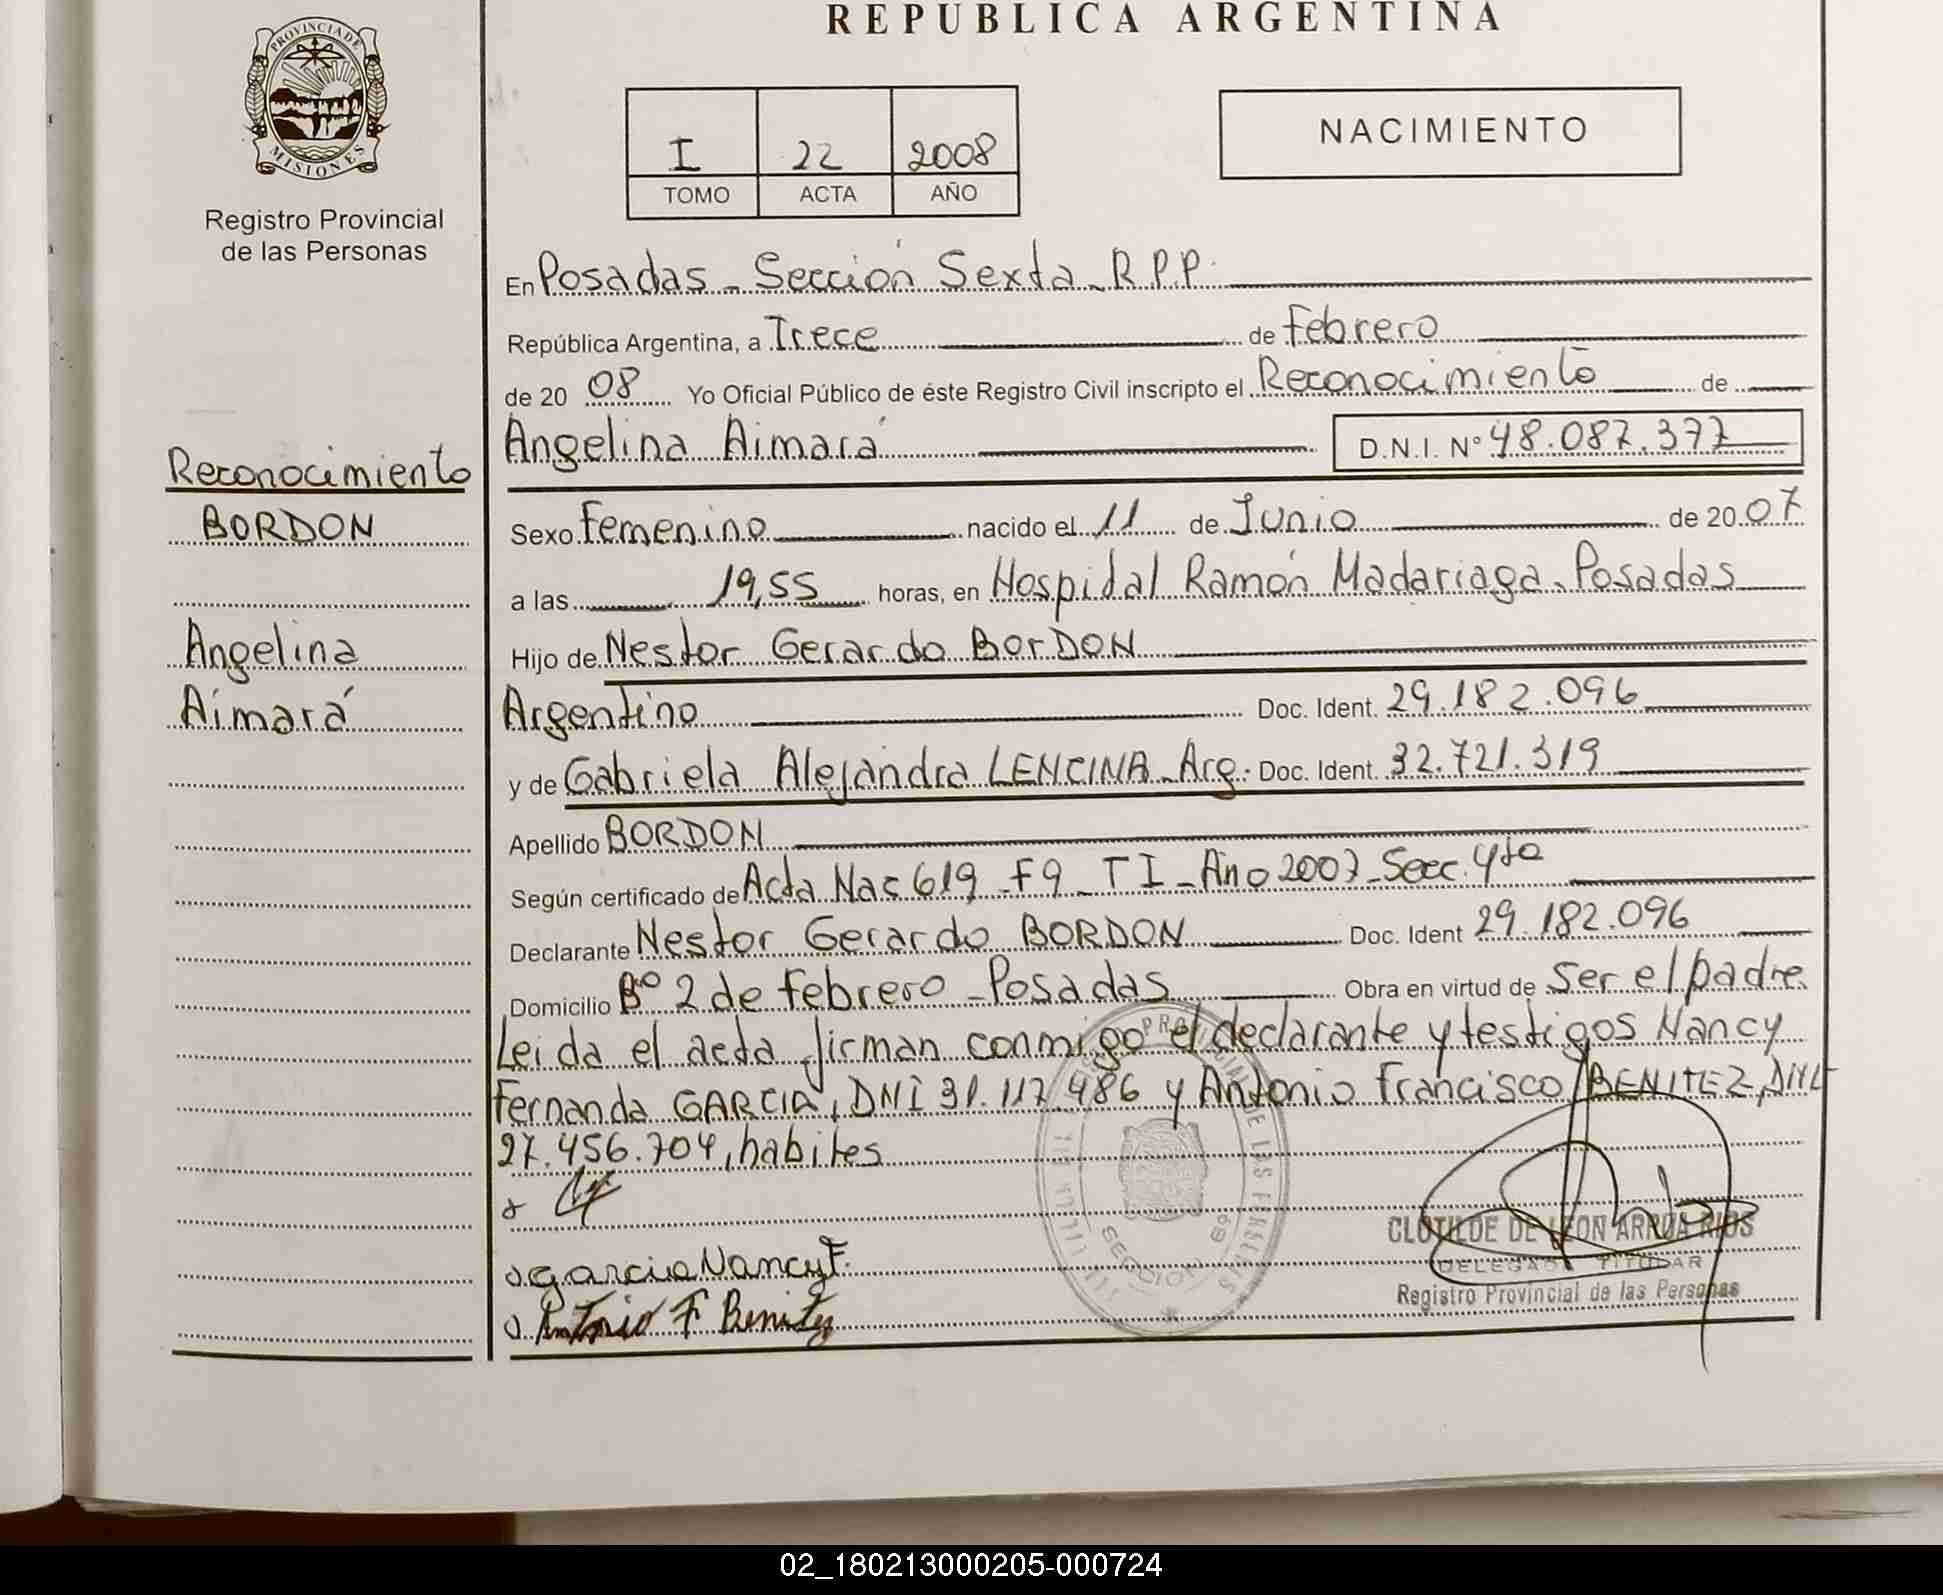 REPUBLICA ARGENTINA
PROVINCIA DE
MISIONES
Registro Provincial
de las Personas
I 22 2008
TOMO ACTA AÑO
NACIMIENTO
En Posadas - Sección Sexta - R.P.P.
República Argentina, a Trece de Febrero
de 20 08 Yo Oficial Público de éste Registro Civil inscripto el Reconocimiento de
Angelina Aimará D.N.I. Nº 48.087.377
Reconocimiento
BORDON
Angelina
Aimará
Sexo Femenino nacido el 11 de Junio de 20 07
a las 19,55 horas, en Hospidal Ramón Madariaga - Posadas
Hijo de Nestor Gerardo BorDON
Argentino Doc. Ident. 29.182.096
y de Gabriela Alejandra LENCINA - Arg. Doc. Ident 32.721.319
Apellido BORDON
Según certificado de Acta Nac 619 - F9 - T I - Año 2007 - Secc. 4ta
Declarante Nestor Gerardo BORDON Doc. Ident 29.182.096
Domicilio Bº 2 de Febrero - Posadas Obra en virtud de Ser el padre
Leida el acta firman conmigo el declarante y testigos Nancy
Fernanda GARCIA, DNI 31.117.486 y Antonio Francisco BENITEZ, DNI
27.456.704, habiles
Garcia Nancy F.
Antonio F Benitez
SECCION 6ª
CLOTILDE DE LEON ARRUA RIOS
DELEGADA TITULAR
Registro Provincial de las Personas
02_180213000205-000724